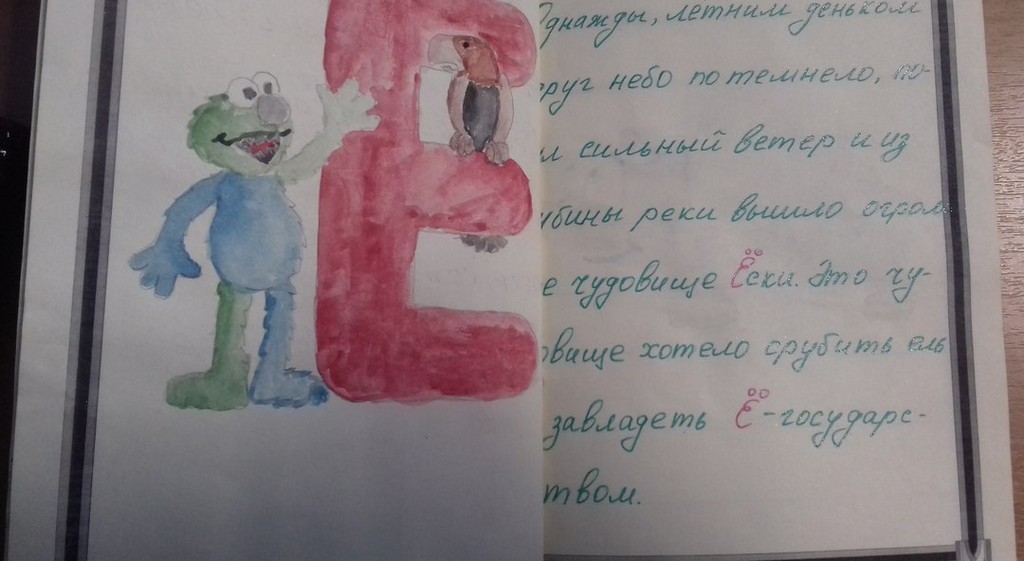 Е
Однажды, летним деньком
друг небо потемнело, по-
л сильный ветер и из
убины реки вышло огром
е чудовище Ёски. Это чу-
овище хотело срубить ель
завладеть Ё-государс-
твом.